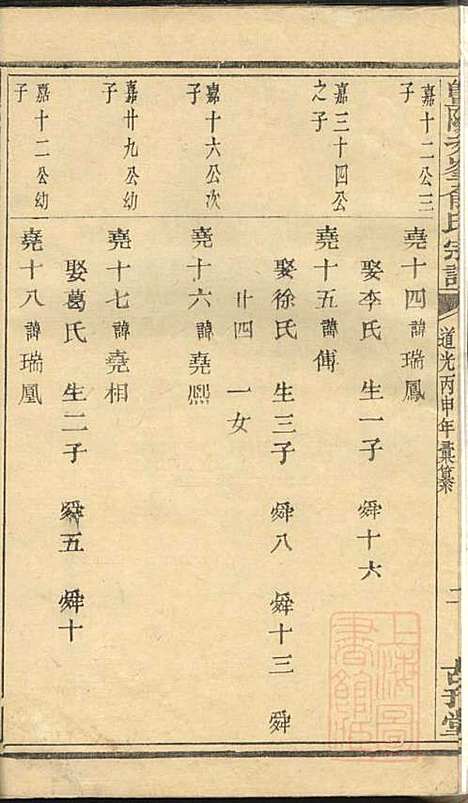 道光丙申年彙纂
二
嘉十二公三子
堯十四諱瑞鳳
娶李氏 生一子 舜十六
嘉三十四公之子
堯十五諱傳
娶徐氏 生三子 舜八 舜十三 舜
廿四 一女
嘉十六公次子
堯十六諱堯熙
嘉廿九公幼子
堯十七諱堯相
娶葛氏 生二子 舜五 舜十
嘉十二公幼子
堯十八諱瑞凰
上海圖書館藏